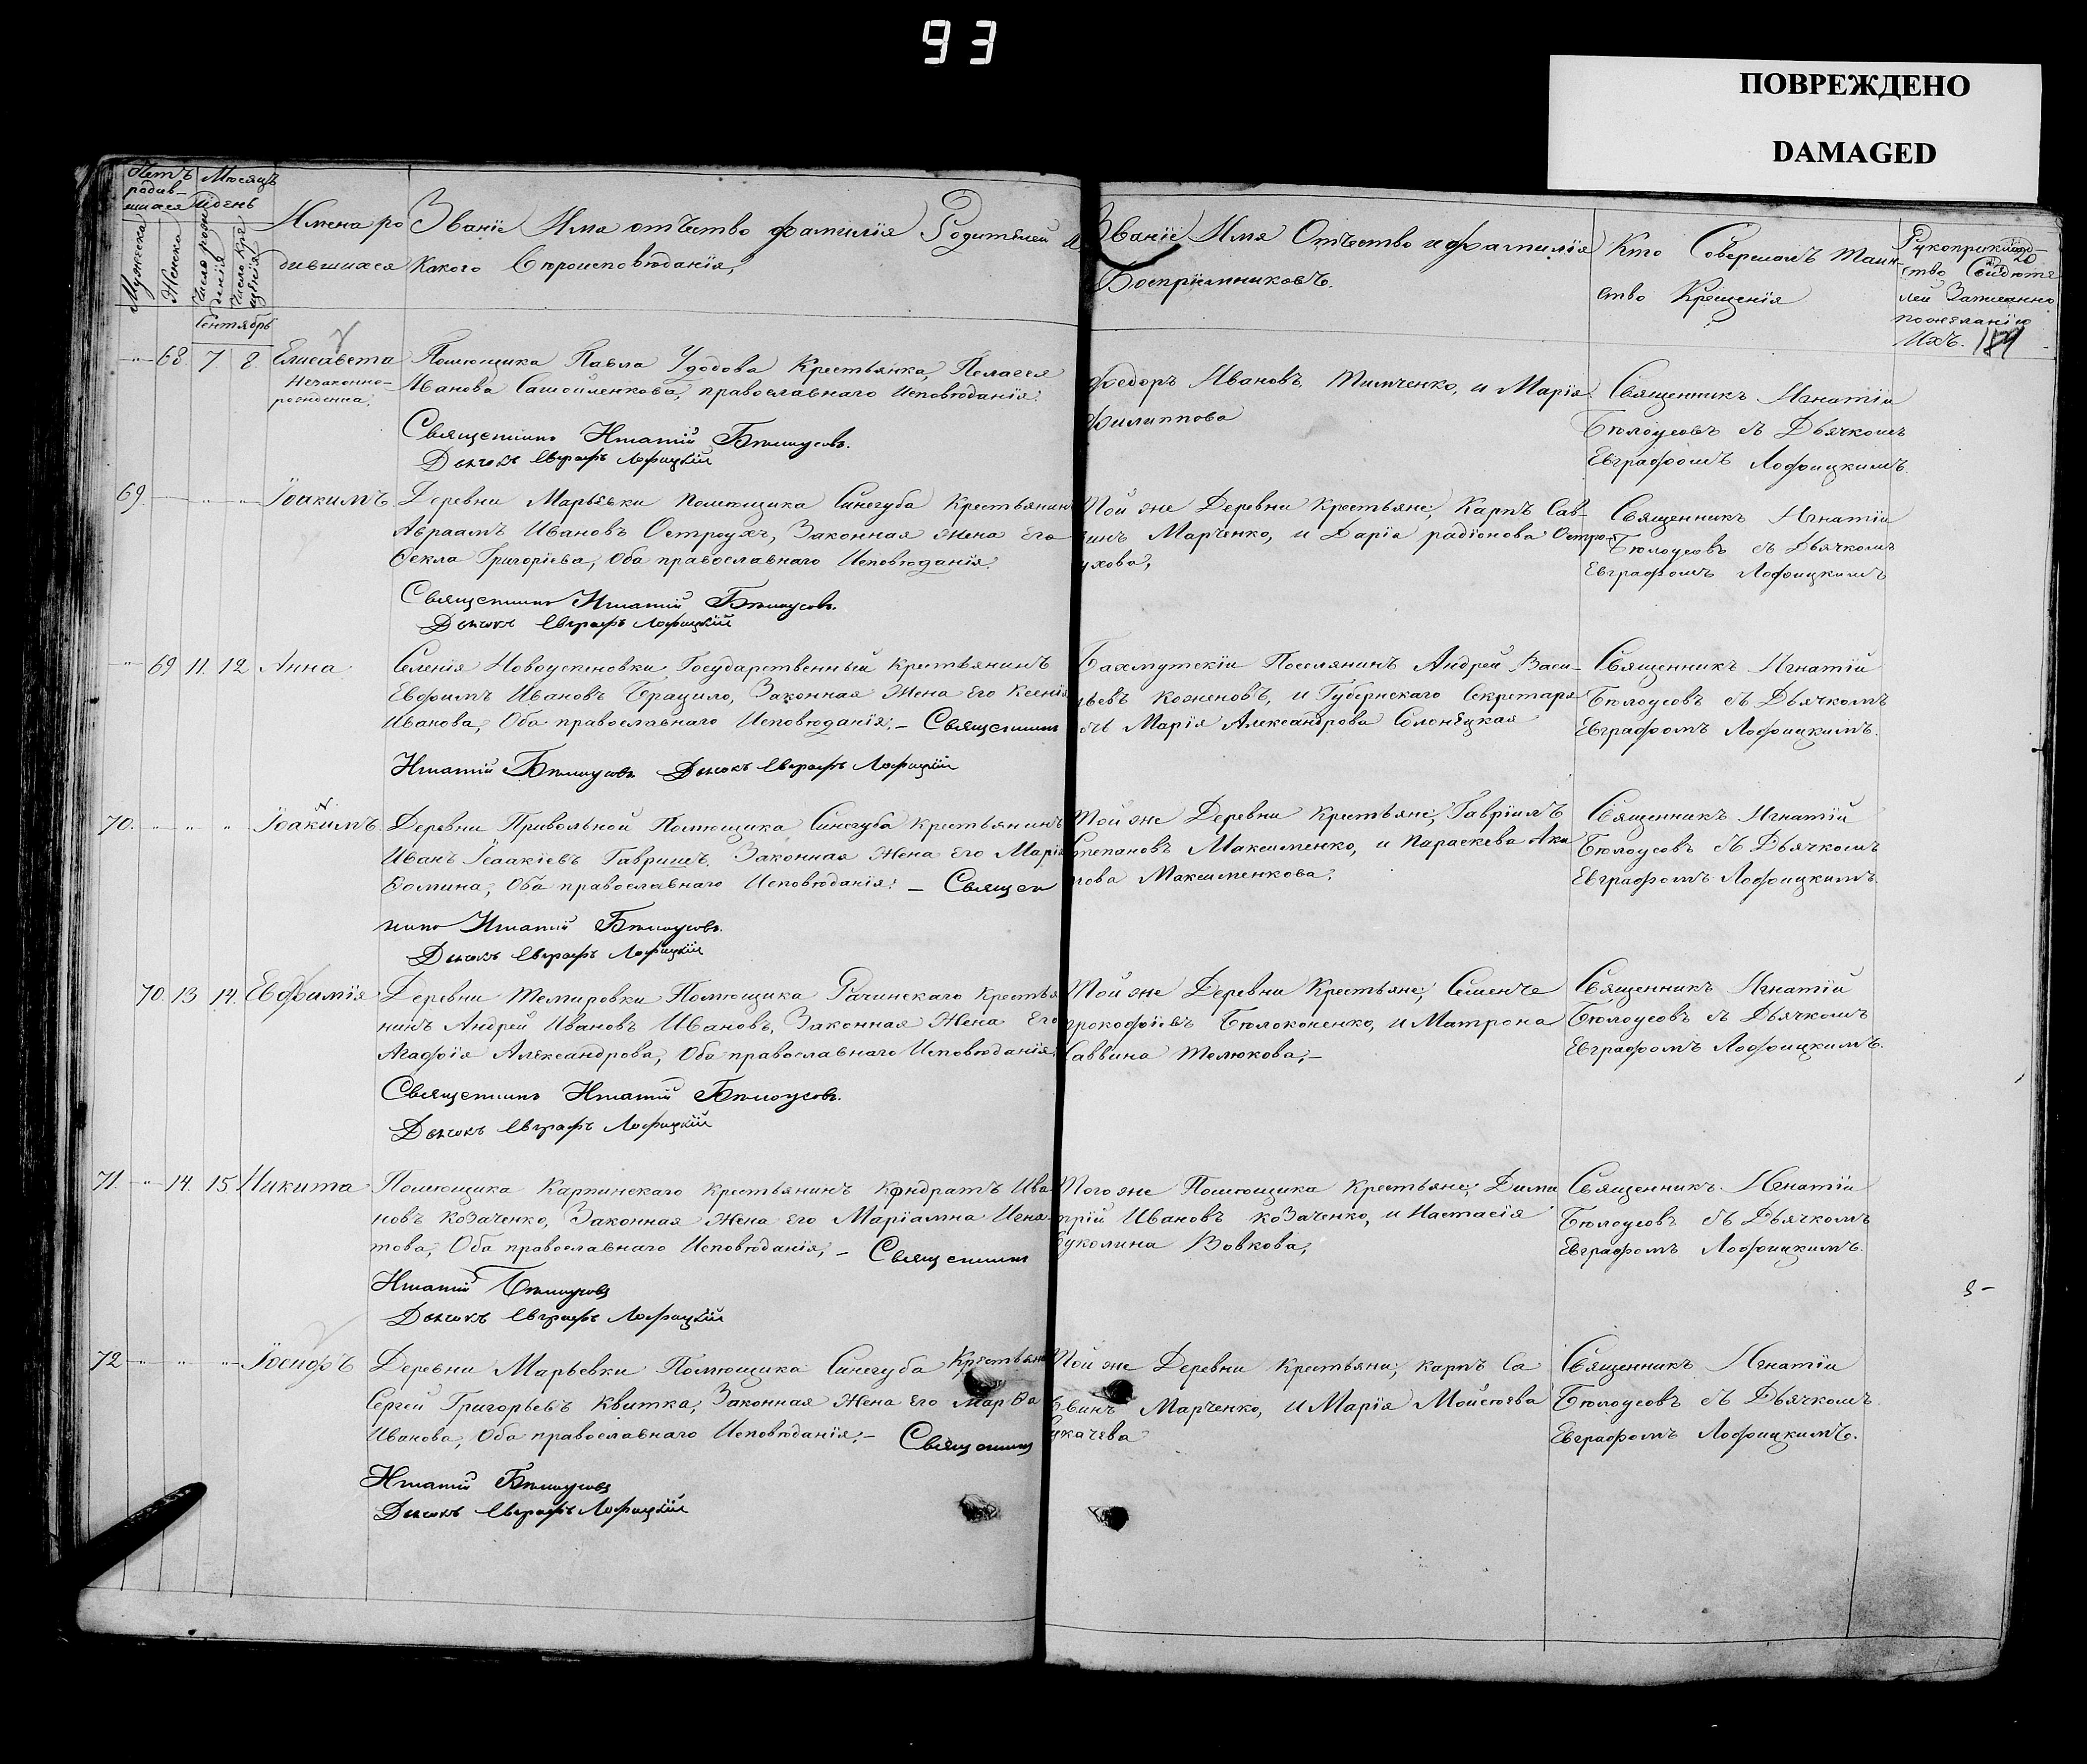 93
ПОВРЕЖДЕНО
DAMAGED
Счетъ родив-шихся
Мѣсяцъ и день
Мужеска
Женска
Число рожденія
Число крещенія
Имена ро
дившихся
Званіе Имя отчество фамилія Родителей и
какого Вѣроисповѣданія,
Званіе Имя Отчество и фамилія
Воспріемниковъ.
Кто Совершалъ Таин
ство Крещенія
Рукоприклад-
ство Свидѣте
лей Записанно
по желанію
Ихъ.
Сентябрь
68. 7. 8. Елисавета
Незаконно-
рожденна.
Помѣщика Павла Удодова Крестьянка, Пелагея
Иванова Самойленкова, православнаго Исповѣданія.
Священникъ Игнатій Бѣлоусовъ.
Дьячокъ Евграфъ Лофицкій
Федоръ Ивановъ Тимченко, и Марія
Филиппова
Священникъ Игнатій
Бѣлоусовъ съ Дьячкомъ
Евграфомъ Лофицкимъ.
69. Іоакимъ.
Деревни Марьевки помѣщика Синегуба Крестьянинъ
Авраамъ Ивановъ Остроухъ, Законная Жена Его
Ѳекла Григоріева, Оба православнаго Исповѣданія.
Священникъ Игнатій Бѣлоусовъ.
Дьячокъ Евграфъ Лофицкій
Той же Деревни Крестьяне, Карпъ Сав-
инъ Марченко, и Дарія радіонова Остро-
ухова,
Священникъ Игнатій
Бѣлоусовъ съ Дьячкомъ
Евграфомъ Лофицкимъ
69 11. 12. Анна
Селенія Новоуспеновки Государственный крестьянинъ
Евфимъ Ивановъ Брацило, Законная Жена Его Ксенія
Иванова, Оба православнаго Исповѣданія; - Священникъ
Игнатій Бѣлоусовъ Дьячокъ Евграфъ Лофицкій
Бахмутскій Поселянинъ Андрей Васи-
льевъ Коженовъ, и Губернскаго Секретаря
Марія Александрова Солонецкая
Священникъ Игнатій
Бѣлоусовъ съ Дьячкомъ
Евграфомъ Лофицкимъ.
70. Іоакимъ.
Деревни Привольной Помѣщика Синегуба крестьянинъ
Иванъ Ісаакіевъ Гавришъ. Законная Жена Его Марія
Ѳомина, Оба православнаго Исповѣданія: - Священ
никъ Игнатій Бѣлоусовъ.
Дьячокъ Евграфъ Лофицкій
Той же Деревни Крестьяне, Гавріилъ
Степановъ Максименко, и Параскева Ака
пова Максименкова,
Священникъ Игнатій
Бѣлоусовъ съ Дьячкомъ
Евграфомъ Лофицкимъ.
70. 13 14. Евфимія
Деревни Темировки Помѣщика Рачинскаго крестья
нинъ Андрей Ивановъ Ивановъ, Законная Жена Его
Агафія Александрова, Оба православнаго Исповѣданія.
Священникъ Игнатій Бѣлоусовъ.
Дьячокъ Евграфъ Лофицкій
Той же Деревни Крестьяне,
прокофіевъ Бѣлоконенко, и Матрона
Саввина Телюкова, -
Священникъ Игнатій
Бѣлоусовъ съ Дьячкомъ
Евграфомъ Лофицкимъ.
71. 14. 15 Никита
Помѣщика Карпинскаго крестьянинъ Кондратъ Ива
новъ Козаченко, Законная Жена Его Маріамна Игна
това, Оба православнаго Исповѣданія, - Священникъ
Игнатій Бѣлоусовъ
Дьячокъ Евграфъ Лофицкій
Того же Помѣщика Крестьяне, Дими
трій Ивановъ Козаченко, и Настасія
Вуколина Вовкова,
Священникъ Игнатій
Бѣлоусовъ съ Дьячкомъ
Евграфомъ Лофицкимъ.
72 Іосифъ
Деревни Марьевки Помѣщика Синегуба Крестьян
Сергей Григорьевъ Квитка, Законная Жена Его Марѳа
Иванова, Оба православнаго Исповѣданія, - Священникъ
Игнатій Бѣлоусовъ
Дьячокъ Евграфъ Лофицкій
Той же Деревни Крестьяни, карпъ Са
ввинъ Марченко, и Марія Мойсѣева
Священникъ Игнатіи
Бѣлоусовъ съ Дьячкомъ
Евграфомъ Лофицкимъ.